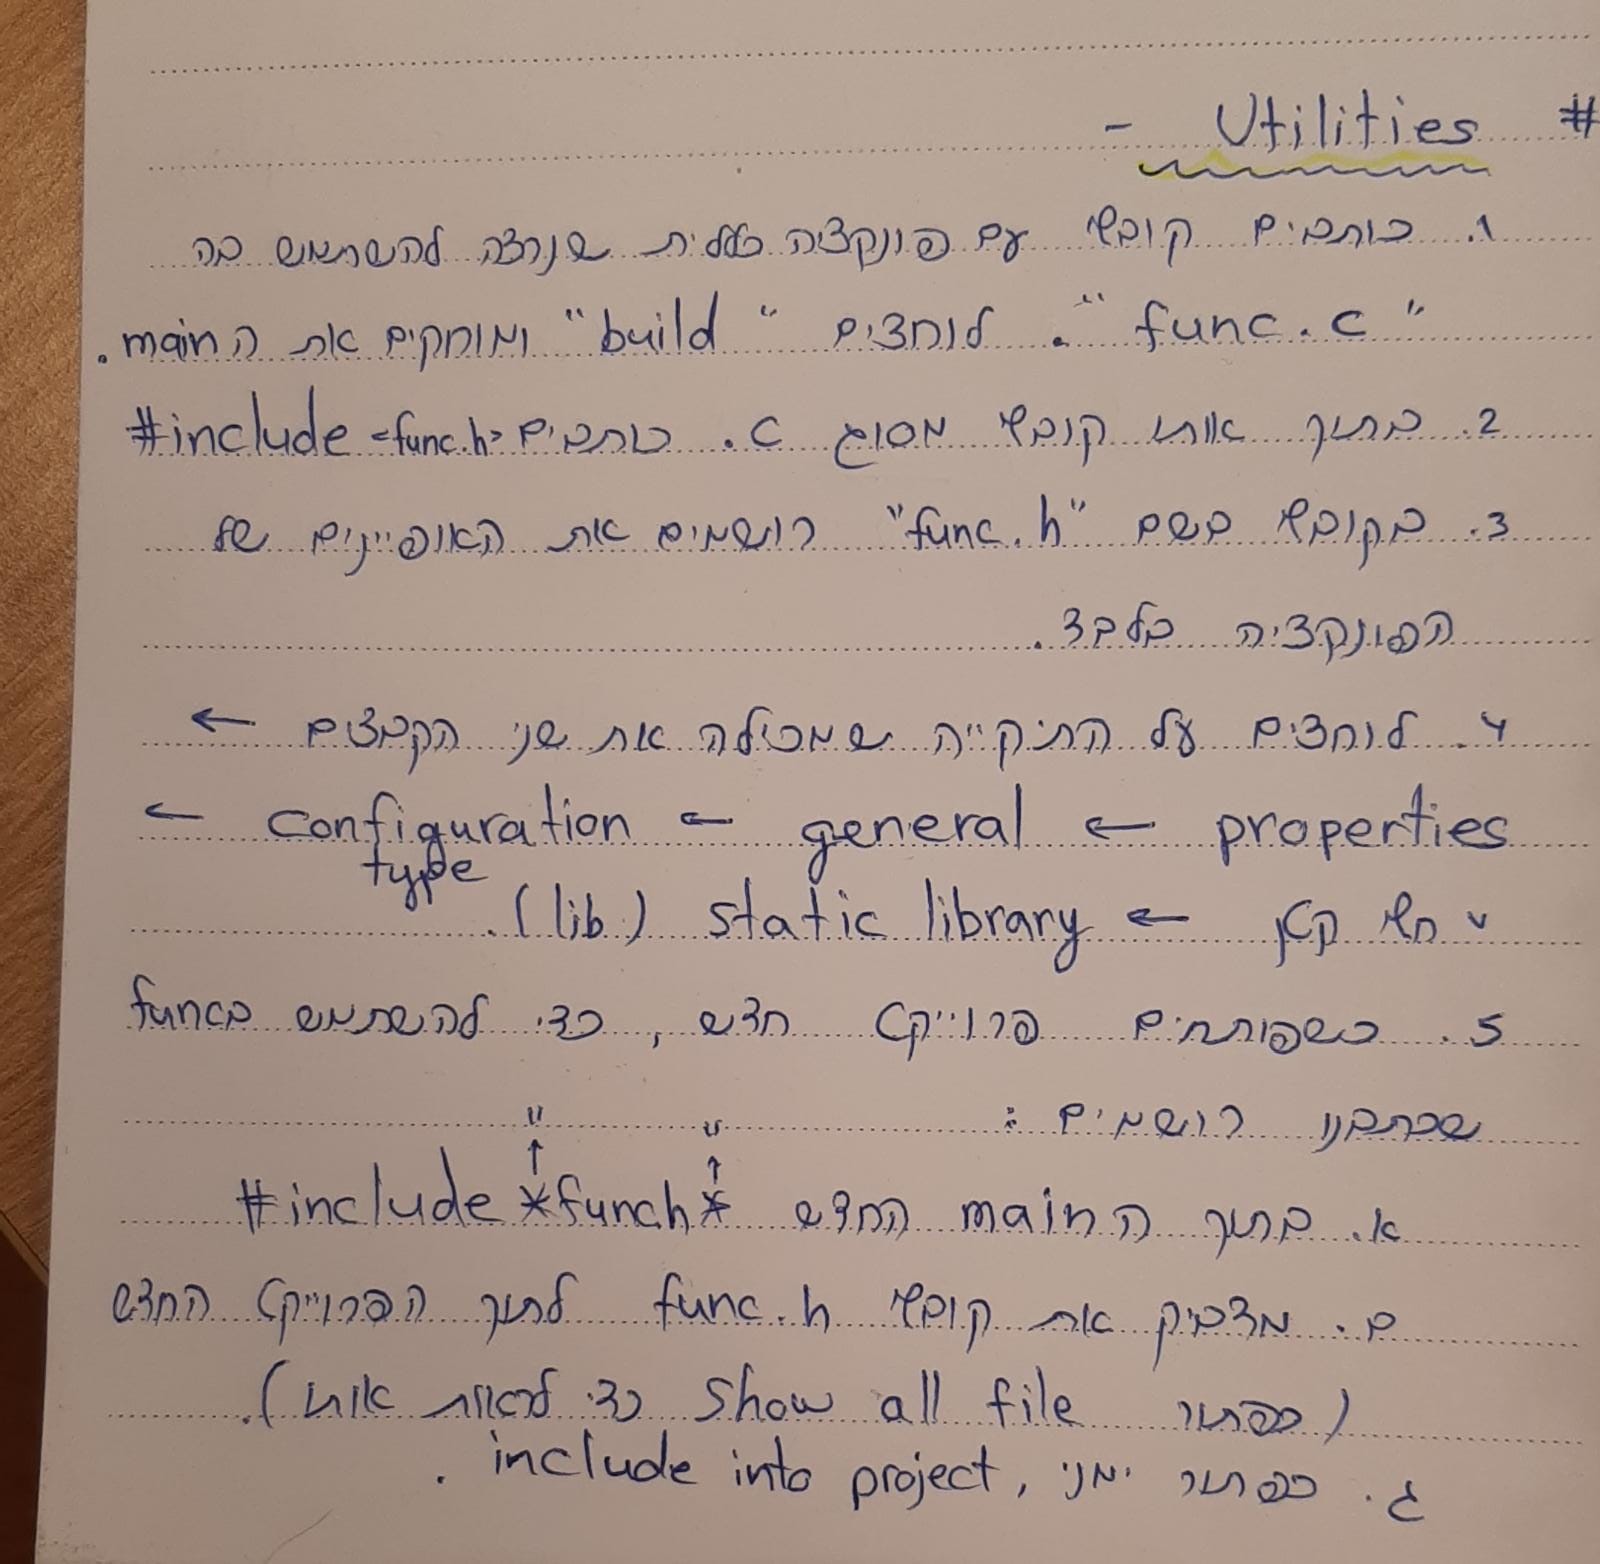 # Utilities -
1. כותבים קובץ עם פונקציה כללית שנרצה להשתמש בה
"func.c". לוחצים "build" ומוחקים את ה main.
2. בתוך אותו קובץ מסוג c. כותבים #include <func.h>
3. בקובץ בשם "func.h" רושמים את האופיינים של
הפונקציה בלבד.
4. לוחצים על התיקייה שמכילה את שני הקבצים ←
properties ← general ← configuration type ←
חץ קטן ← static library (lib).
5. כשפותחים פרוייקט חדש, כדי להשתמש בfunc
שכתבנו רושמים:
" "
א. בתוך ה main החדש #include *func.h*
ב. מדביק את קובץ func.h לתוך הפרוייקט החדש
(כפתור show all file כדי לראות אותו).
ג. כפתור ימני, include into project.